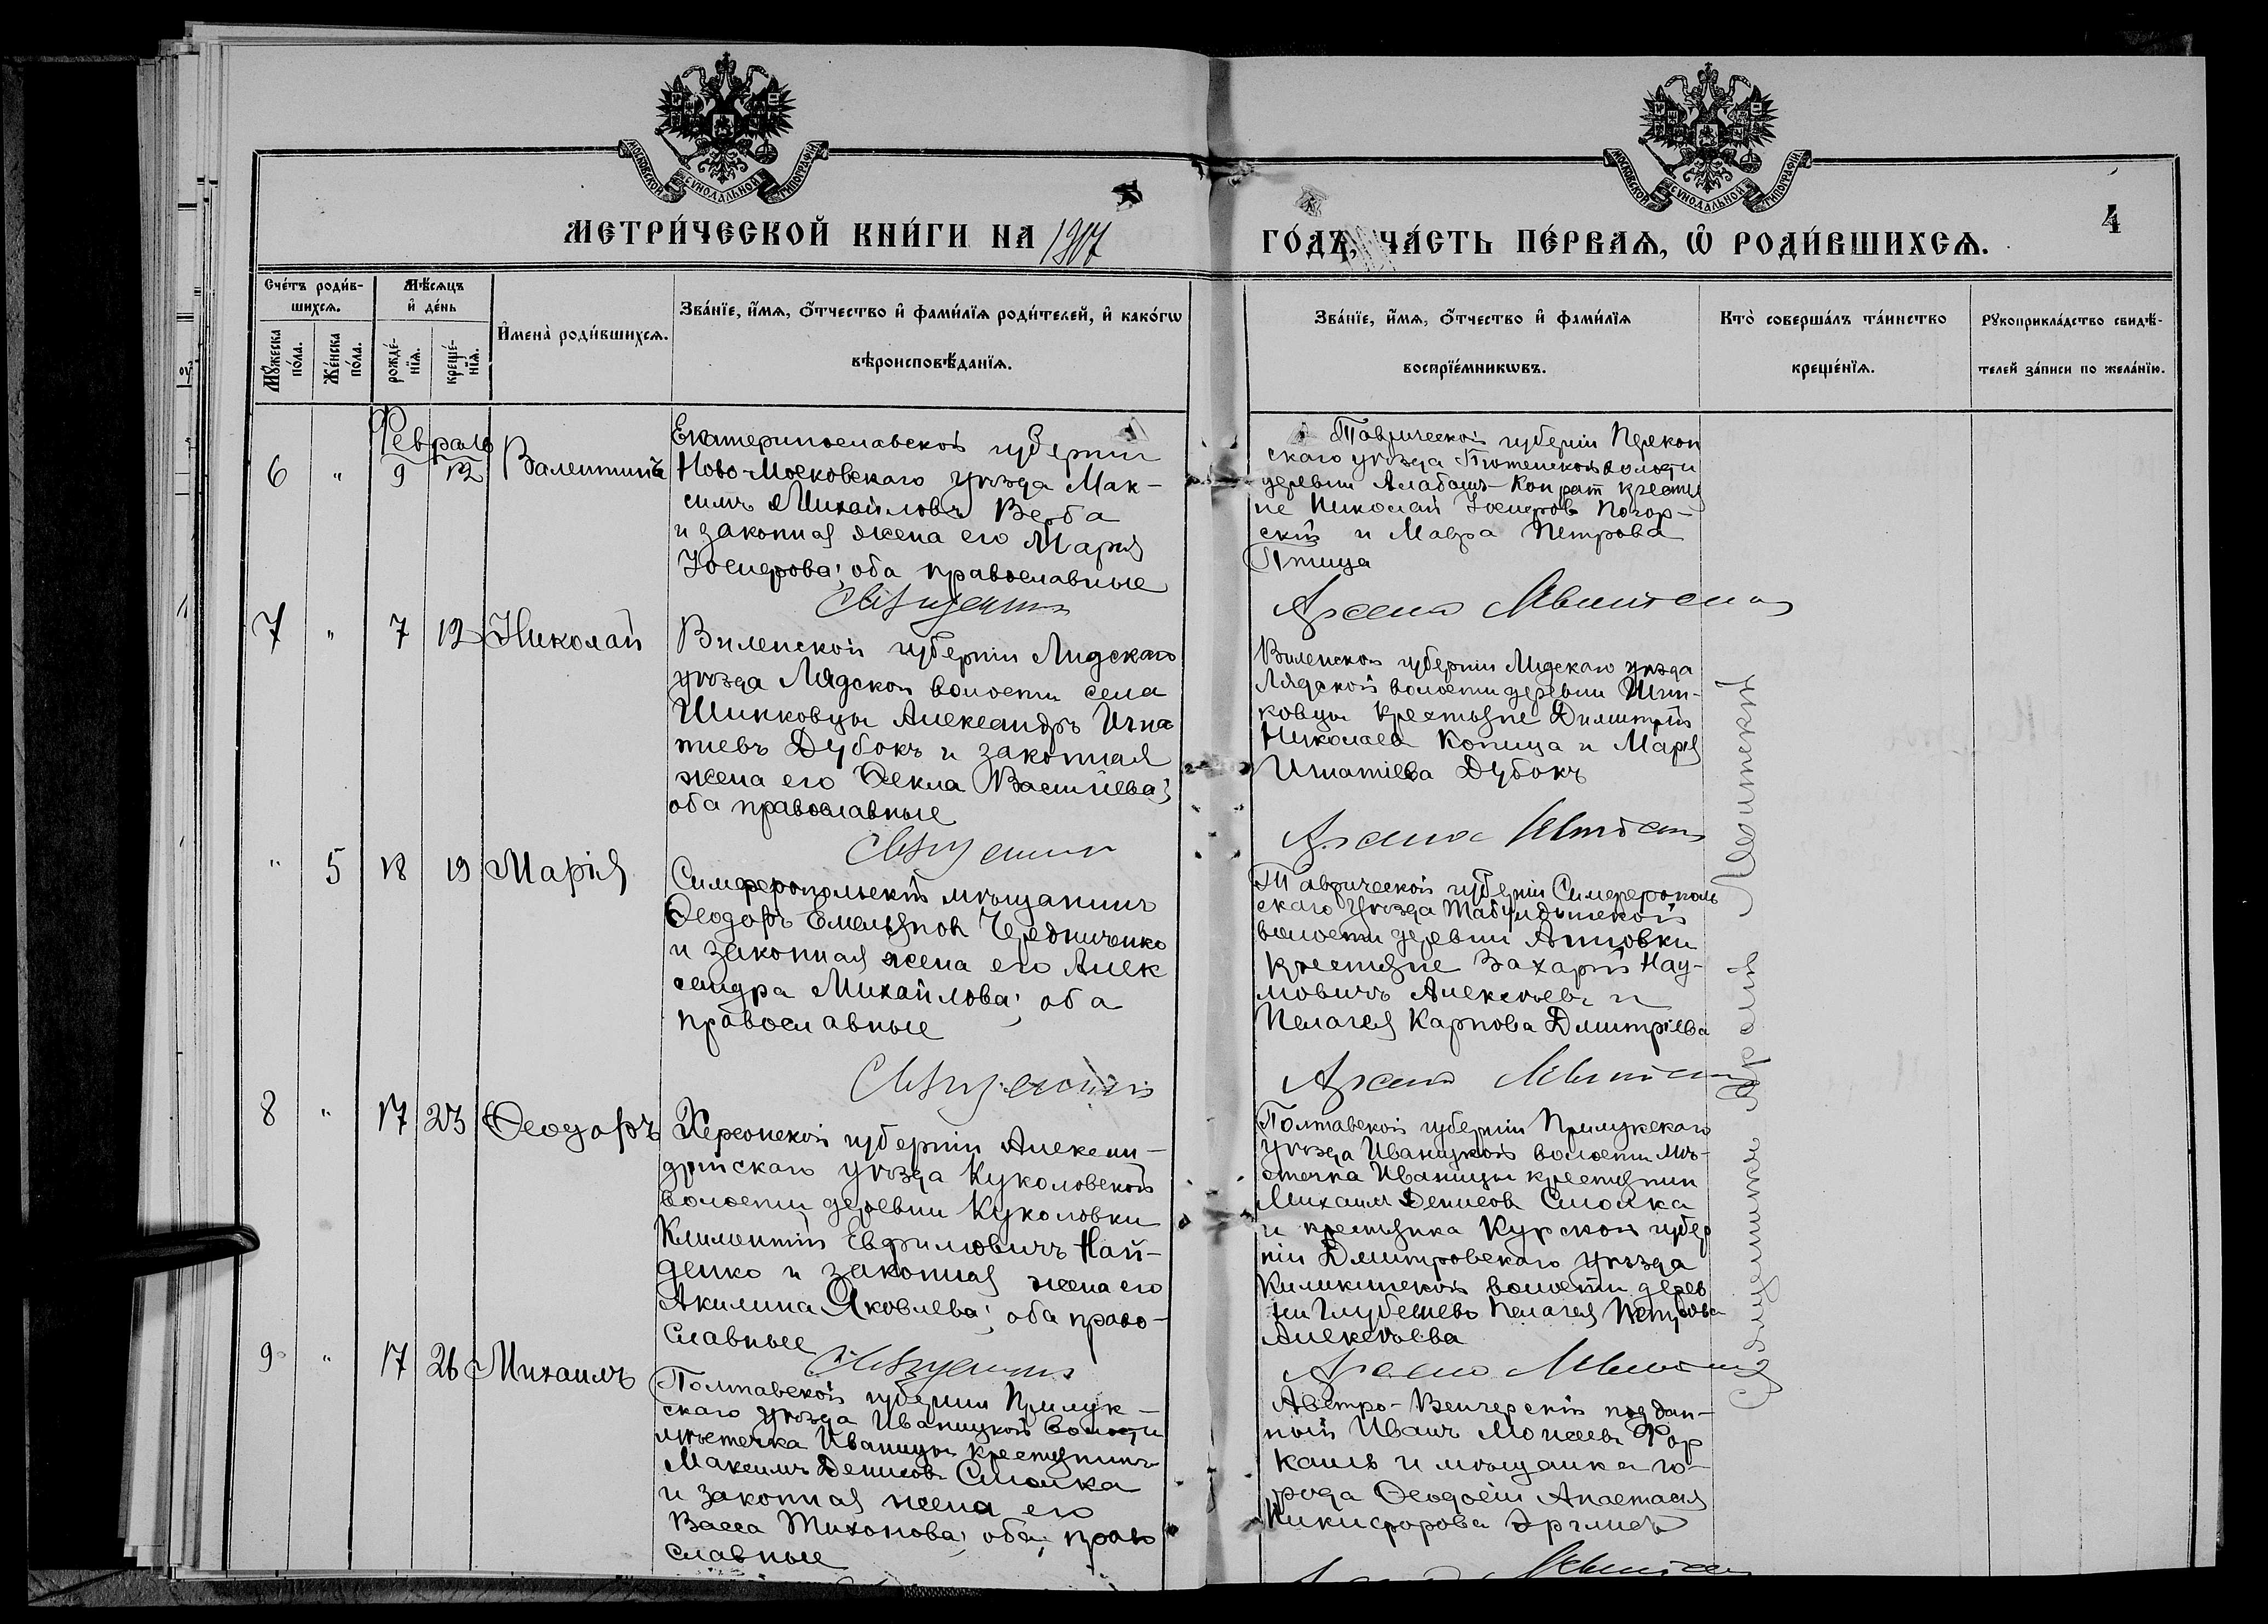 МОСКОВСКОЙ СѴНОДАЛЬНОЙ ТИПОГРАФІИ
МОСКОВСКОЙ СѴНОДАЛЬНОЙ ТИПОГРАФІИ
МЕТРИ́ЧЕСКОЙ КНИ́ГИ НА 1917
ГО́ДЪ, ЧА́СТЬ ПЕ́РВАѦ, Ѡ҆ РОДИ́ВШИХСѦ.
4
Сче́тъ роди́в-
шихсѧ.
Мꙋ́жеска по́ла.
Же́нска по́ла.
Мѣ́сѧцъ
и҆ де́нь
рожде́-нїѧ.
креще́-нїѧ.
И҆мена̀ роди́вшихсѧ.
Зва́нїе, и҆́мѧ, ѻ҆́тчество и҆ фами́лїѧ роди́телей, и҆ како́гѡ
вѣроисповѣ́данїѧ.
Зва́нїе, и҆́мѧ, ѻ҆́тчество и҆ фами́лїѧ
воспрїе́мникѡвъ.
Кто̀ соверша́лъ та́инство
креще́нїѧ.
Рꙋкоприкла́дство свидѣ́-
телей за́писи по жела́нїю.
Февраль
6 " 9 12 Валентинъ
Екатеринославской губерніи
Ново-Московскаго уѣзда Мак-
симъ Михайловъ Верба
и законная жена его Марія
Іосифова; оба православные
Таврической губерніи Перекоп
скаго уѣзда волости
деревни Алабашъ-Конрат крестья
не Николай Іосифовъ Погор-
скій и Мавра Петрова
Птица
7 " 7 12 Николай
Виленской губерніи Лидскаго
уѣзда Лядской волости села
Шинковцы Александръ Игна
тіевъ Дубокъ и законная
жена его Ѳекла Васильева;
оба православные
Виленской губерніи Лидскаго уѣзда
Лядской волости деревни Шин-
ковцы крестьяне Димитрій
Николаевъ Копица и Марія
Игнатіева Дубокъ
" 5 18 19 Марія
Симферопольскій мѣщанинъ
Ѳеодоръ Емельяновъ Чередниченко
и законная жена его Алек
сандра Михайлова; оба
православные
Таврической губерніи Симферополь
скаго уѣзда Табулдинской
волости деревни Анновки
крестьяне Захарій Нау-
мовичъ Алексѣевъ и
Пелагея Карпова Дмитріева
8 " 17 23 Ѳеодоръ
Херсонской губерніи Алексан-
дрійскаго уѣзда Куколовской
волости деревни Куколовки
Климентій Евфимовичъ Най-
денко и законная жена его
Акилина Яковлева; оба право-
славные
Полтавской губерніи Прилукскаго
уѣзда Иваницкой волости мѣ-
стечка Иваницы крестьянин
Михаилъ Денисовъ Смолка
и крестьянка Курской губер
ніи Дмитровскаго уѣзда
волости дерев
ни Пелагея Петрова
Алексѣева
9 " 17 26 Михаилъ
Полтавской губерніи Прилук-
скаго уѣзда Иваницкой волости
мѣстечка Иваницы крестьянинъ
Максимъ Денисовъ Смолка
и законная жена его
Васса Тихонова; оба право
славные
Австро-Венгерскій поддан-
ный Иванъ Моисеевъ Фор
каль и мѣщанка го-
рода Ѳеодосіи Анастасія
Никифорова
Священникъ Арсеній